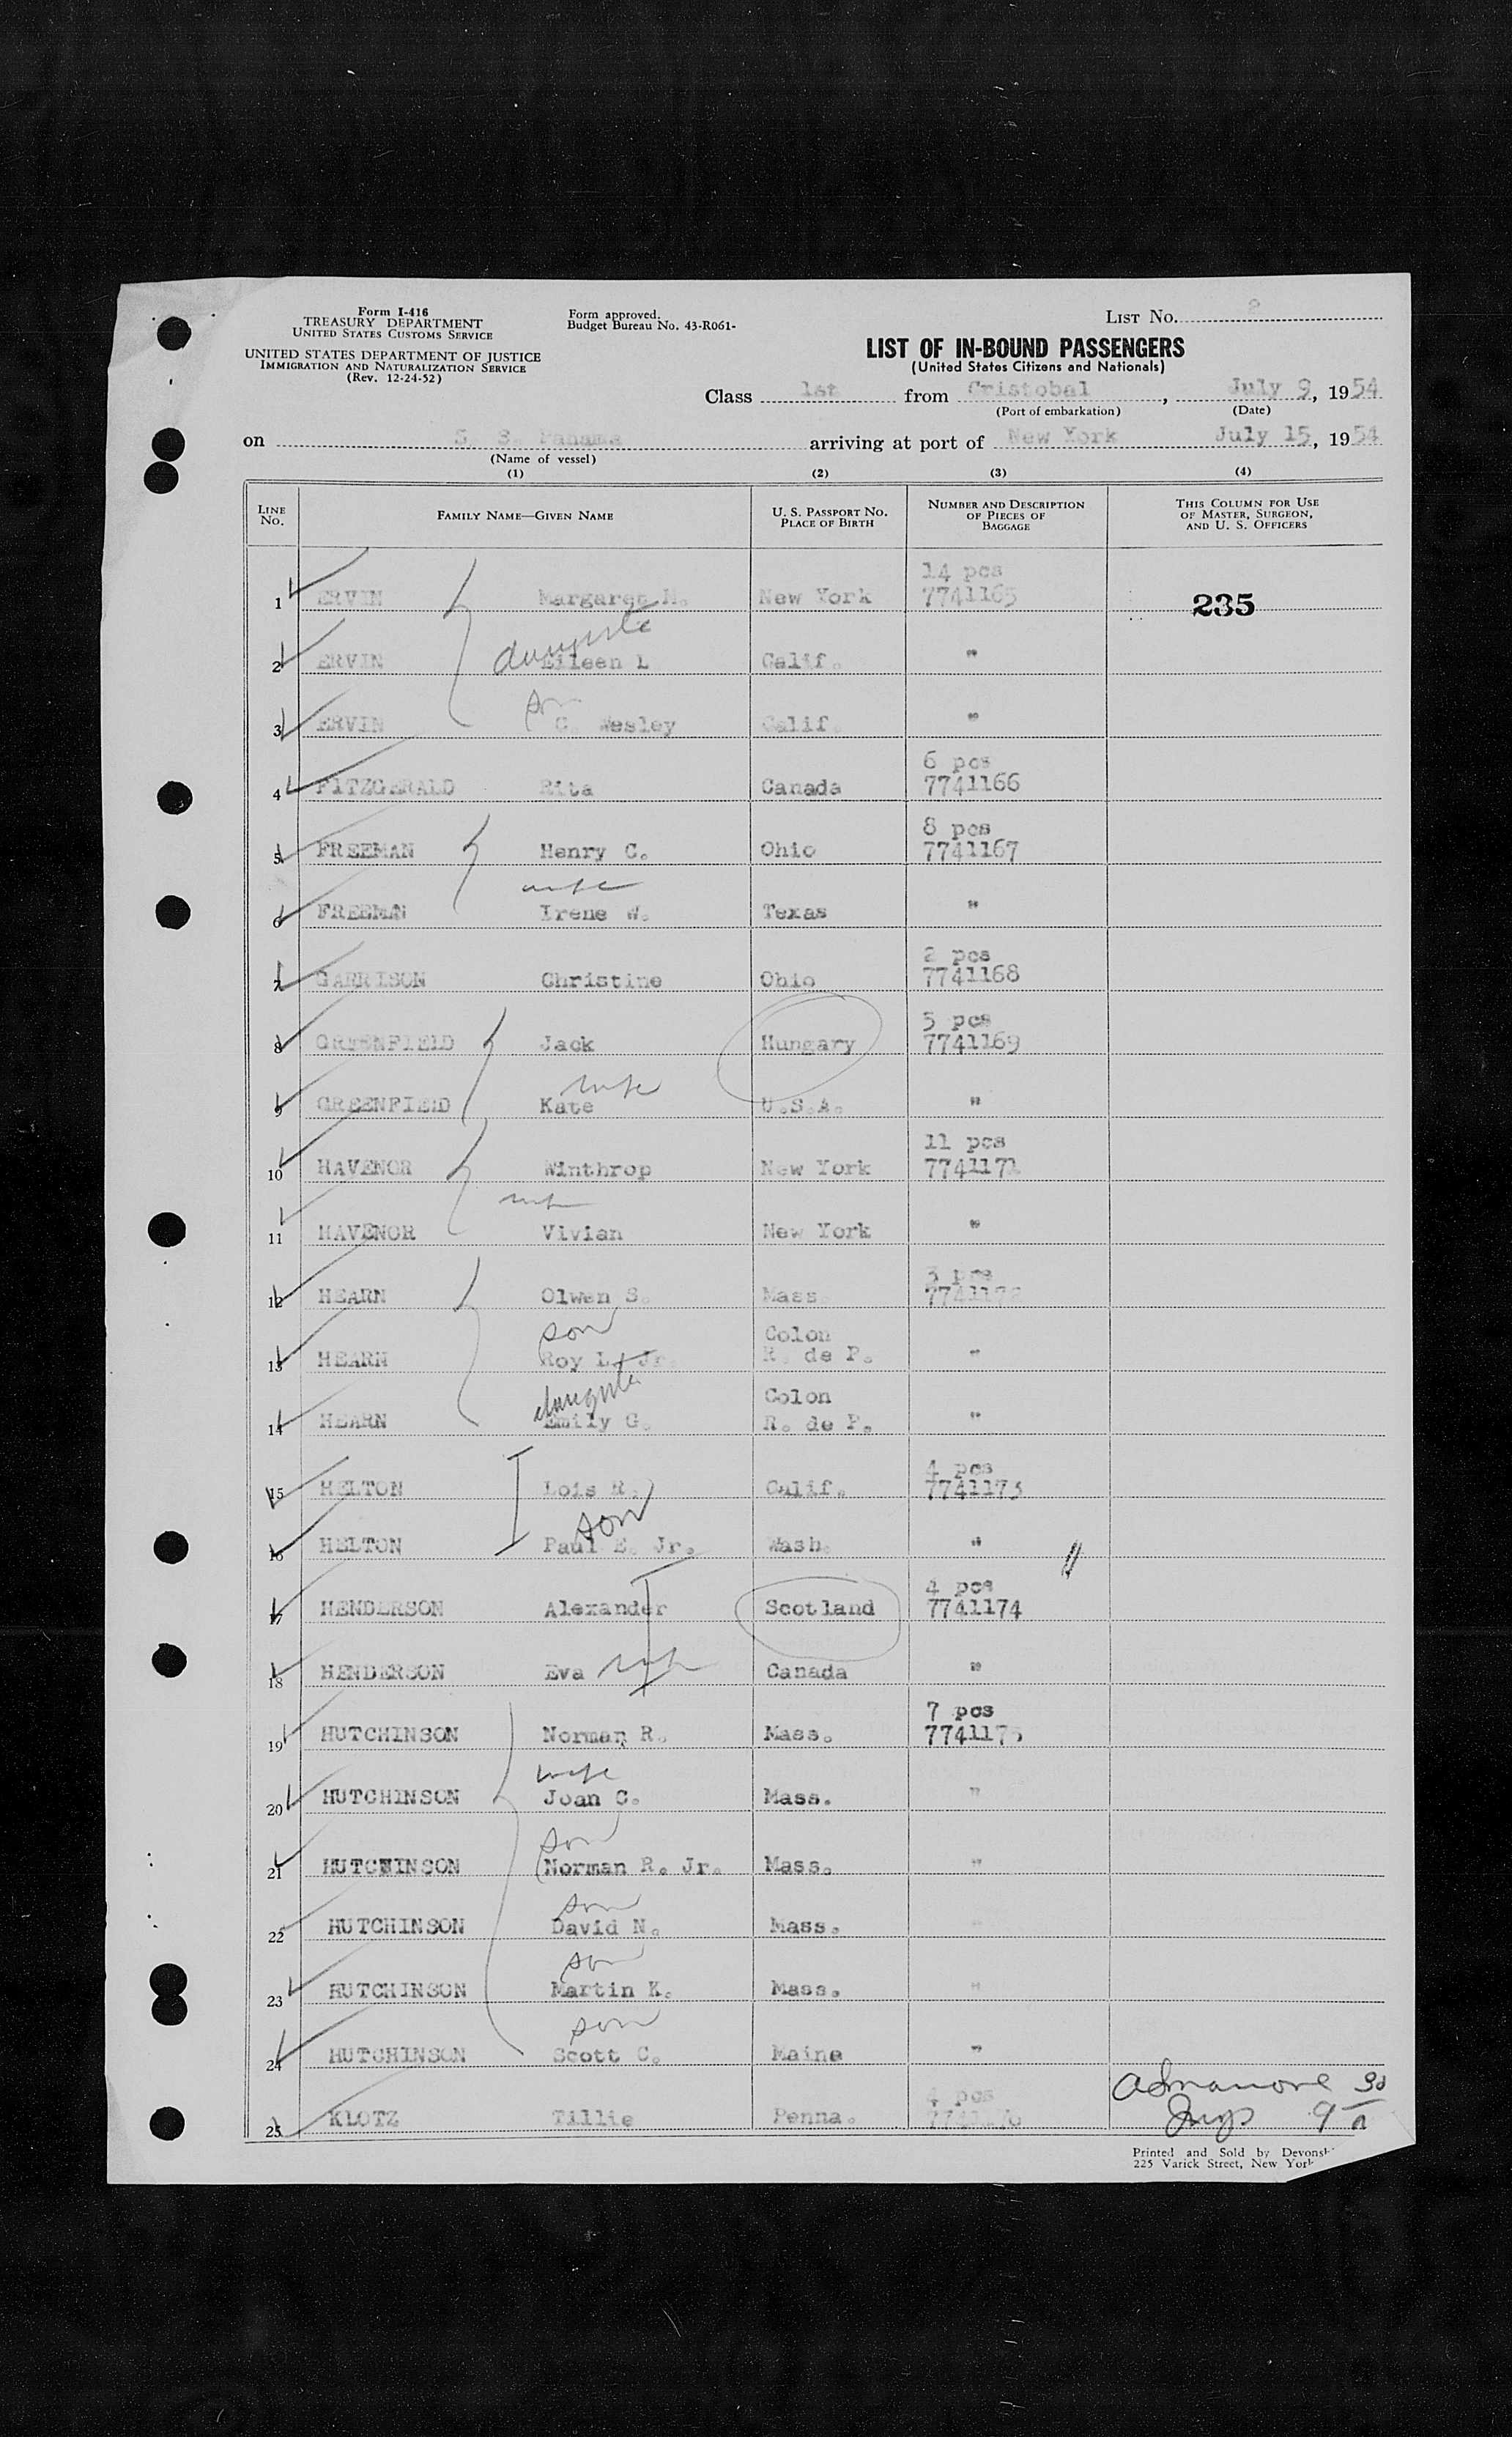 Form I-416
TREASURY DEPARTMENT
UNITED STATES CUSTOMS SERVICE
UNITED STATES DEPARTMENT OF JUSTICE
IMMIGRATION AND NATURALIZATION SERVICE
(Rev. 12-24-52)
Form approved.
Budget Bureau No. 43-R061-
LIST NO. 2
LIST OF IN-BOUND PASSENGERS
(United States Citizens and Nationals)
Class 1st from Cristobal, July 9, 1954
(Port of embarkation) (Date)
on S. S. Panama arriving at port of New York July 15, 1954
(Name of vessel)
(1) (2) (3) (4)
LINE NO. FAMILY NAME—GIVEN NAME U. S. PASSPORT NO. PLACE OF BIRTH NUMBER AND DESCRIPTION OF PIECES OF BAGGAGE THIS COLUMN FOR USE OF MASTER, SURGEON, AND U. S. OFFICERS
14 pcs
1 ERVIN Margaret M. New York 7741165 235
daughter
2 ERVIN Eileen L Calif. "
son
3 ERVIN C. Wesley Calif. "
6 pcs
4 FITZGERALD Rita Canada 7741166
8 pcs
5 FREEMAN Henry C. Ohio 7741167
wife
6 FREEMAN Irene W. Texas "
2 pcs
7 GARRISON Christine Ohio 7741168
5 pcs
8 GREENFIELD Jack Hungary 7741169
wife
9 GREENFIELD Kate U.S.A. "
11 pcs
10 HAVENOR Winthrop New York 7741171
wife
11 HAVENOR Vivian New York "
3 pcs
12 HEARN Olwen S. Mass. 7741172
son Colon
13 HEARN Roy L. Jr. R. de P. "
daughter Colon
14 HEARN Emily G. R. de P. "
4 pcs
15 HELTON Lois R. Calif. 7741173
son
16 HELTON Paul E. Jr. Wash. "
4 pcs
17 HENDERSON Alexander Scotland 7741174
18 HENDERSON Eva wife Canada "
7 pcs
19 HUTCHINSON Norman R. Mass. 7741175
wife
20 HUTCHINSON Joan C. Mass. "
son
21 HUTCHINSON Norman R. Jr. Mass. "
son
22 HUTCHINSON David N. Mass. "
son
23 HUTCHINSON Martin K. Mass. "
son
24 HUTCHINSON Scott C. Maine "
4 pcs
25 KLOTZ Tillie Penna. 7741176
Printed and Sold by Devonsh
225 Varick Street, New York